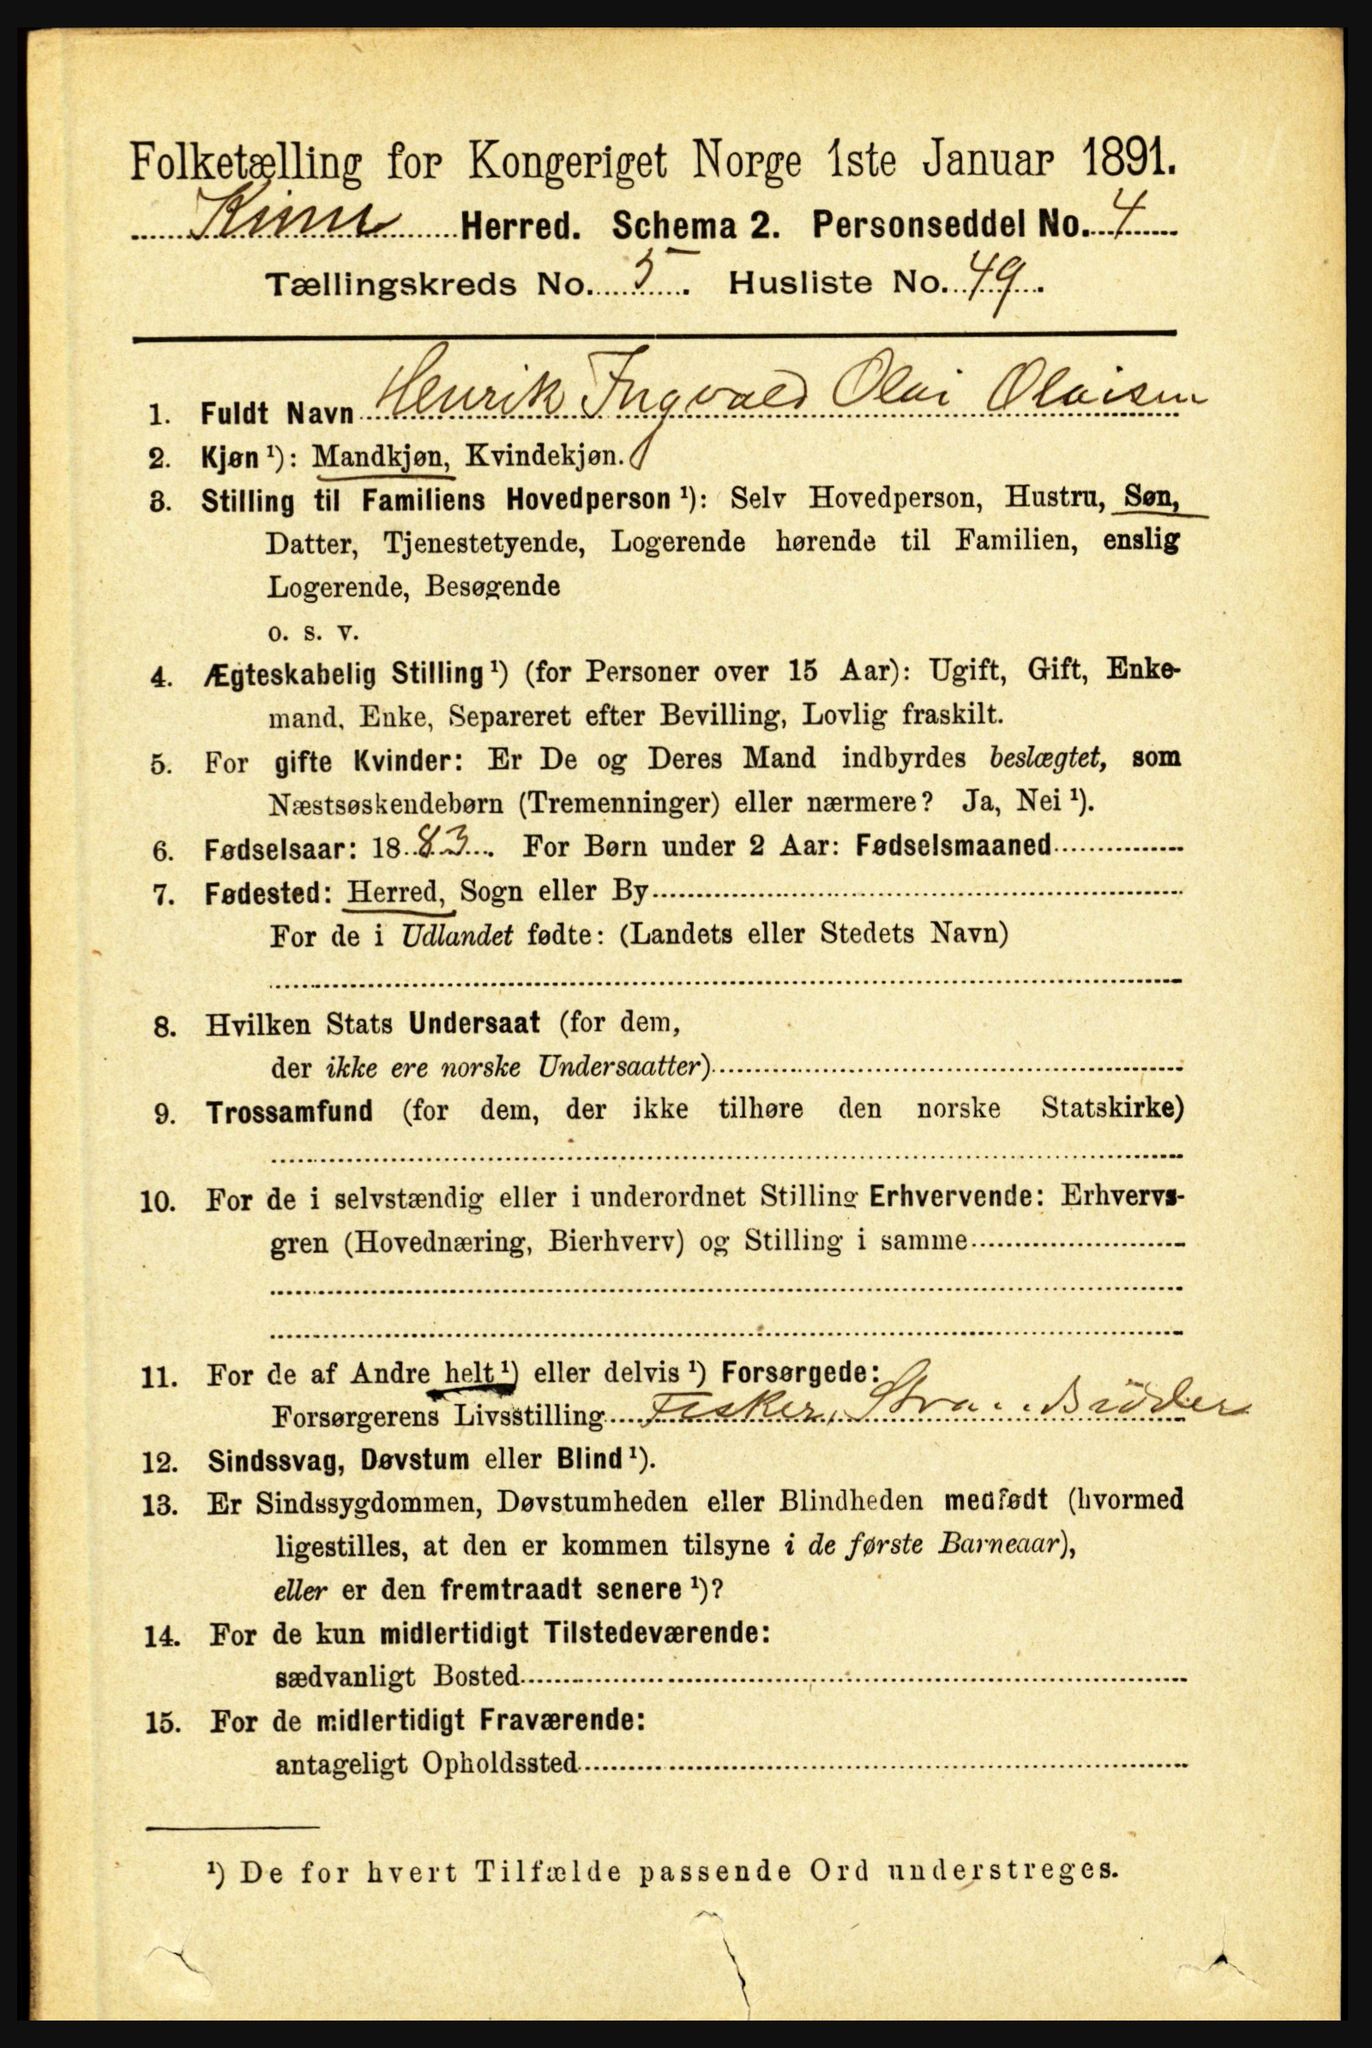 Folketælling for Kongeriget Norge 1ste Januar 1891.
Kinn Herred. Schema 2. Personseddel No. 4
Tællingskreds No. 5. Husliste No. 49.
1. Fuldt Navn Henrik Ingvald Olai Olaisen
2. Kjøn ¹): Mandkjøn, Kvindekjøn.
3. Stilling til Familiens Hovedperson ¹): Selv Hovedperson, Hustru, Søn,
Datter, Tjenestetyende, Logerende hørende til Familien, enslig
Logerende, Besøgende
o. s. v.
4. Ægteskabelig Stilling ¹) (for Personer over 15 Aar): Ugift, Gift, Enke-
mand, Enke, Separeret efter Bevilling, Lovlig fraskilt.
5. For gifte Kvinder: Er De og Deres Mand indbyrdes beslægtet, som
Næstsøskendebørn (Tremenninger) eller nærmere? Ja, Nei ¹).
6. Fødselsaar: 1883. For Børn under 2 Aar: Fødselsmaaned
7. Fødested: Herred, Sogn eller By
For de i Udlandet fødte: (Landets eller Stedets Navn)
8. Hvilken Stats Undersaat (for dem,
der ikke ere norske Undersaatter)
9. Trossamfund (for dem, der ikke tilhøre den norske Statskirke)
10. For de i selvstændig eller i underordnet Stilling Erhvervende: Erhvervs-
gren (Hovednæring, Bierhverv) og Stilling i samme
11. For de af Andre helt ¹) eller delvis ¹) Forsørgede:
Forsørgerens Livsstilling Fisker,
12. Sindssvag, Døvstum eller Blind ¹).
13. Er Sindssygdommen, Døvstumheden eller Blindheden medfødt (hvormed
ligestilles, at den er kommen tilsyne i de første Barneaar),
eller er den fremtraadt senere ¹)?
14. For de kun midlertidigt Tilstedeværende:
sædvanligt Bosted
15. For de midlertidigt Fraværende:
antageligt Opholdssted
¹) De for hvert Tilfælde passende Ord understreges.